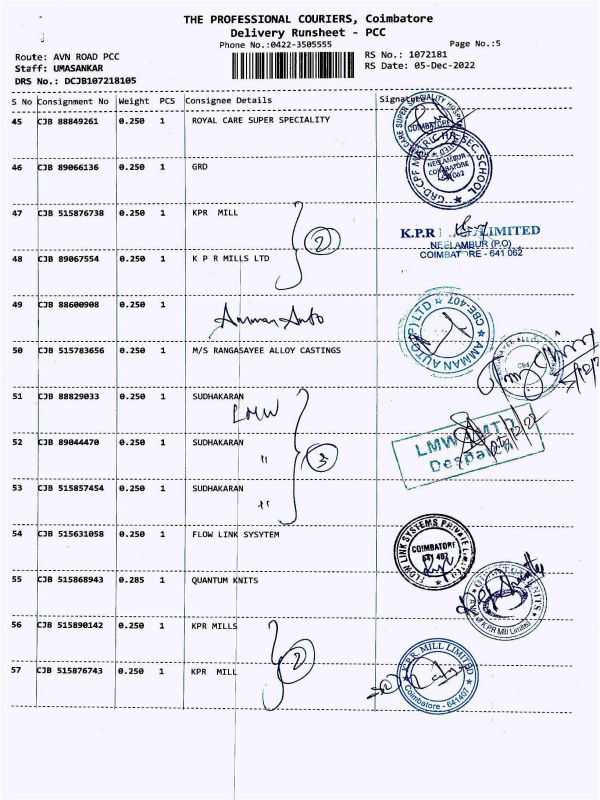 THE PROFESSIONAL COURIERS, Coimbatore
Delivery Runsheet - PCC
Phone No.:0422-3505555
Page No.:5
Route: AVN ROAD PCC
Staff: UMASANKAR
DRS No.: DCJB107218105
RS No.: 1072181
RS Date: 05-Dec-2022
S No Consignment No Weight PCS Consignee Details Signature
45 CJB 88849261 0.250 1 ROYAL CARE SUPER SPECIALITY
CARE SUPER SPECIALITY HOSPITAL
COIMBATORE
46 CJB 89066136 0.250 1 GRD
GRD-CPF MATRIC HR SEC SCHOOL
NEELAMBUR
COIMBATORE
641 062
47 CJB 515876738 0.250 1 KPR MILL
2
K.P.R LIMITED
NEELAMBUR (P.O)
COIMBATORE - 641 062
48 CJB 89067554 0.250 1 K P R MILLS LTD
49 CJB 88600908 0.250 1
Amman Auto
AMMAN AUTO (P) LTD ★ CBE-407 ★
50 CJB 515783656 0.250 1 M/S RANGASAYEE ALLOY CASTINGS
51 CJB 88829033 0.250 1 SUDHAKARAN
LMW
52 CJB 89044470 0.250 1 SUDHAKARAN
"
3
LMW MTD
Despatch
53 CJB 515857454 0.250 1 SUDHAKARAN
"
54 CJB 515631058 0.250 1 FLOW LINK SYSYTEM
FLOW LINK SYSTEMS PRIVATE LIMITED
COIMBATORE
641 407
55 CJB 515868943 0.285 1 QUANTUM KNITS
QUANTUM KNITS
K.P.R Mill Limited
56 CJB 515890142 0.250 1 KPR MILLS
2
57 CJB 515876743 0.250 1 KPR MILL
KPR MILL LIMITED
Coimbatore - 641407